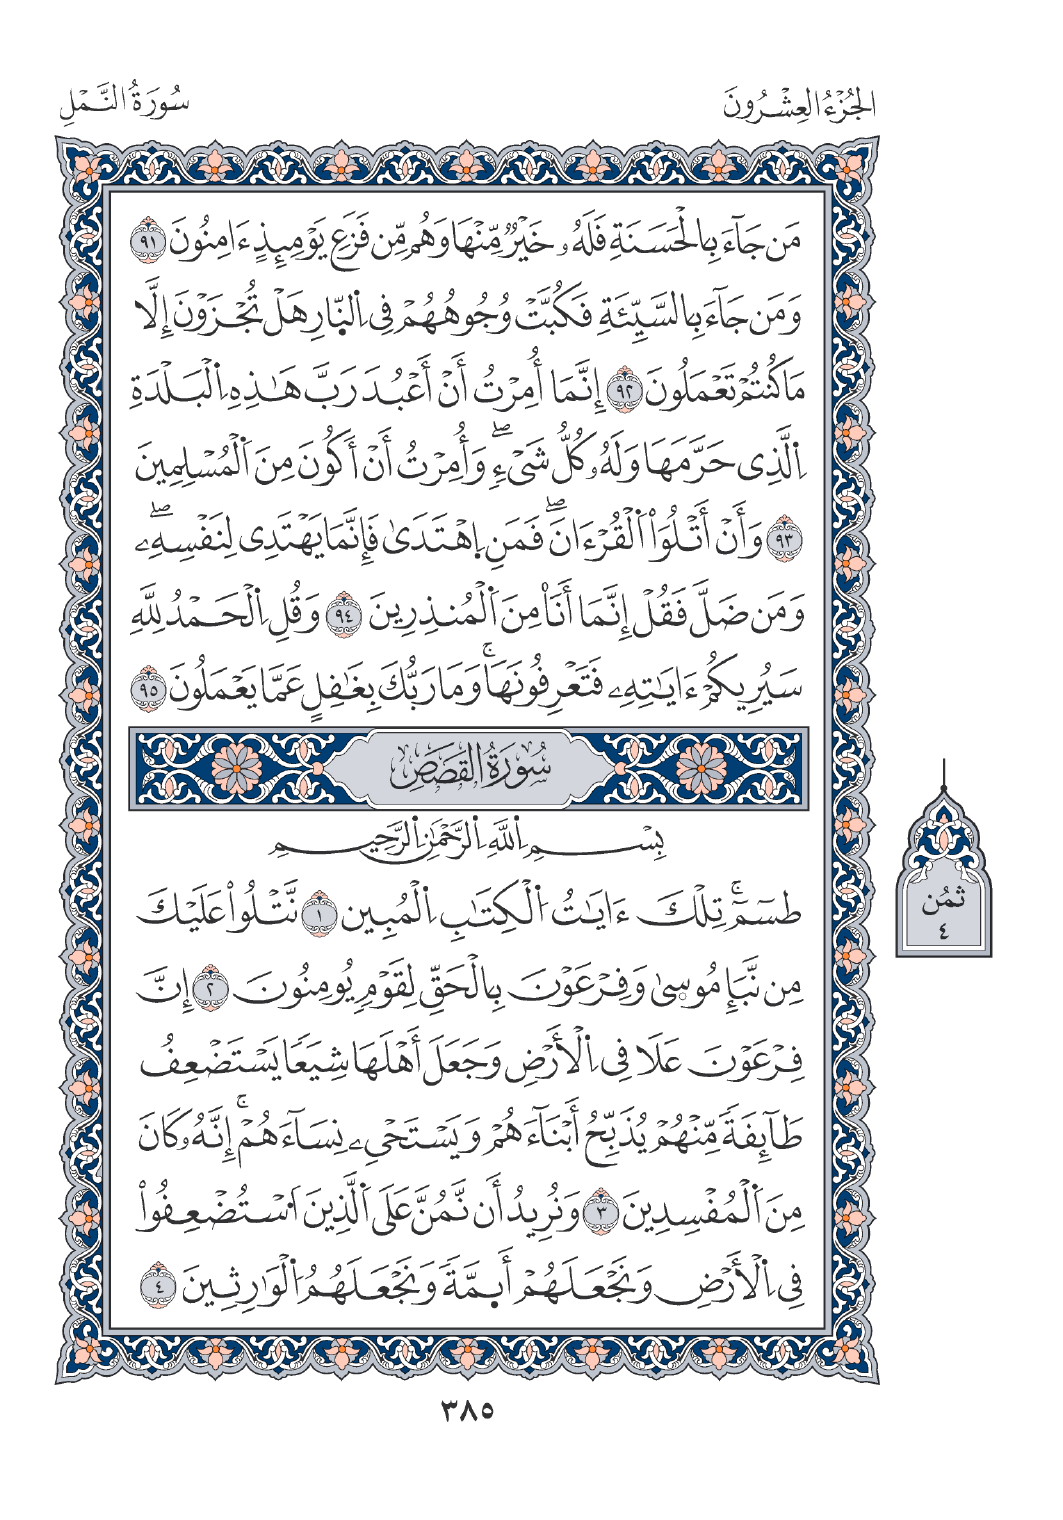 الجُزْءُ العِشْرُونَ
سُورَةُ النَّمْلِ
مَن جَآءَ بِالْحَسَنَةِ فَلَهُۥ خَيْرٌ مِّنْهَا وَهُم مِّن فَزَعِ يَوْمَئِذٍ ءَامِنُونَ ٩١
وَمَن جَآءَ بِالسَّيِّئَةِ فَكُبَّتْ وُجُوهُهُمْ فِى اِ۬لنّ۪ارِ هَلْ تُجْزَوْنَ إِلَّا
مَا كُنتُمْ تَعْمَلُونَ ٩٢ إِنَّمَا أُمِرْتُ أَنْ أَعْبُدَ رَبَّ هَٰذِهِ اِ۬لْبَلْدَةِ
اِ۬لَّذِى حَرَّمَهَا وَلَهُۥ كُلُّ شَىْءٍۖ وَأُمِرْتُ أَنْ أَكُونَ مِنَ اَ۬لْمُسْلِمِينَ
٩٣ وَأَنْ أَتْلُوَاْ اُ۬لْقُرْءَانَۖ فَمَنِ اِ۪هْتَدَىٰ فَإِنَّمَا يَهْتَدِى لِنَفْسِهِۦۖ
وَمَن ضَلَّ فَقُلْ إِنَّمَا أَنَا۠ مِنَ اَ۬لْمُنذِرِينَ ٩٤ وَقُلِ اِ۬لْحَمْدُ لِلَّهِ
سَيُرِيكُمْ ءَايَٰتِهِۦ فَتَعْرِفُونَهَاۚ وَمَا رَبُّكَ بِغَٰفِلٍ عَمَّا يَعْمَلُونَ ٩٥
سُورَةُ القَصَصِ
بِسْمِ اِ۬للَّهِ اِ۬لرَّحْمَٰنِ اِ۬لرَّحِيمِ
طسٓمٓۚ تِلْكَ ءَايَٰتُ اُ۬لْكِتَٰبِ اِ۬لْمُبِينِ ١ نَتْلُواْ عَلَيْكَ
مِن نَّبَإِ مُوس۪ىٰ وَفِرْعَوْنَ بِالْحَقِّ لِقَوْمٍ يُومِنُونَ ٢ إِنَّ
فِرْعَوْنَ عَلَا فِى اِ۬لْأَرْضِ وَجَعَلَ أَهْلَهَا شِيَعًا يَسْتَضْعِفُ
طَآئِفَةً مِّنْهُمْ يُذَبِّحُ أَبْنَآءَهُمْ وَيَسْتَحْىِۦ نِسَآءَهُمْۚ إِنَّهُۥ كَانَ
مِنَ اَ۬لْمُفْسِدِينَ ٣ وَنُرِيدُ أَن نَّمُنَّ عَلَى اَ۬لَّذِينَ اَ۟سْتُضْعِفُواْ
فِى اِ۬لْأَرْضِ وَنَجْعَلَهُمْ أَى۪مَّةً وَنَجْعَلَهُمُ اُ۬لْوَٰرِثِينَ ٤
ثمُن
٤
٣٨٥